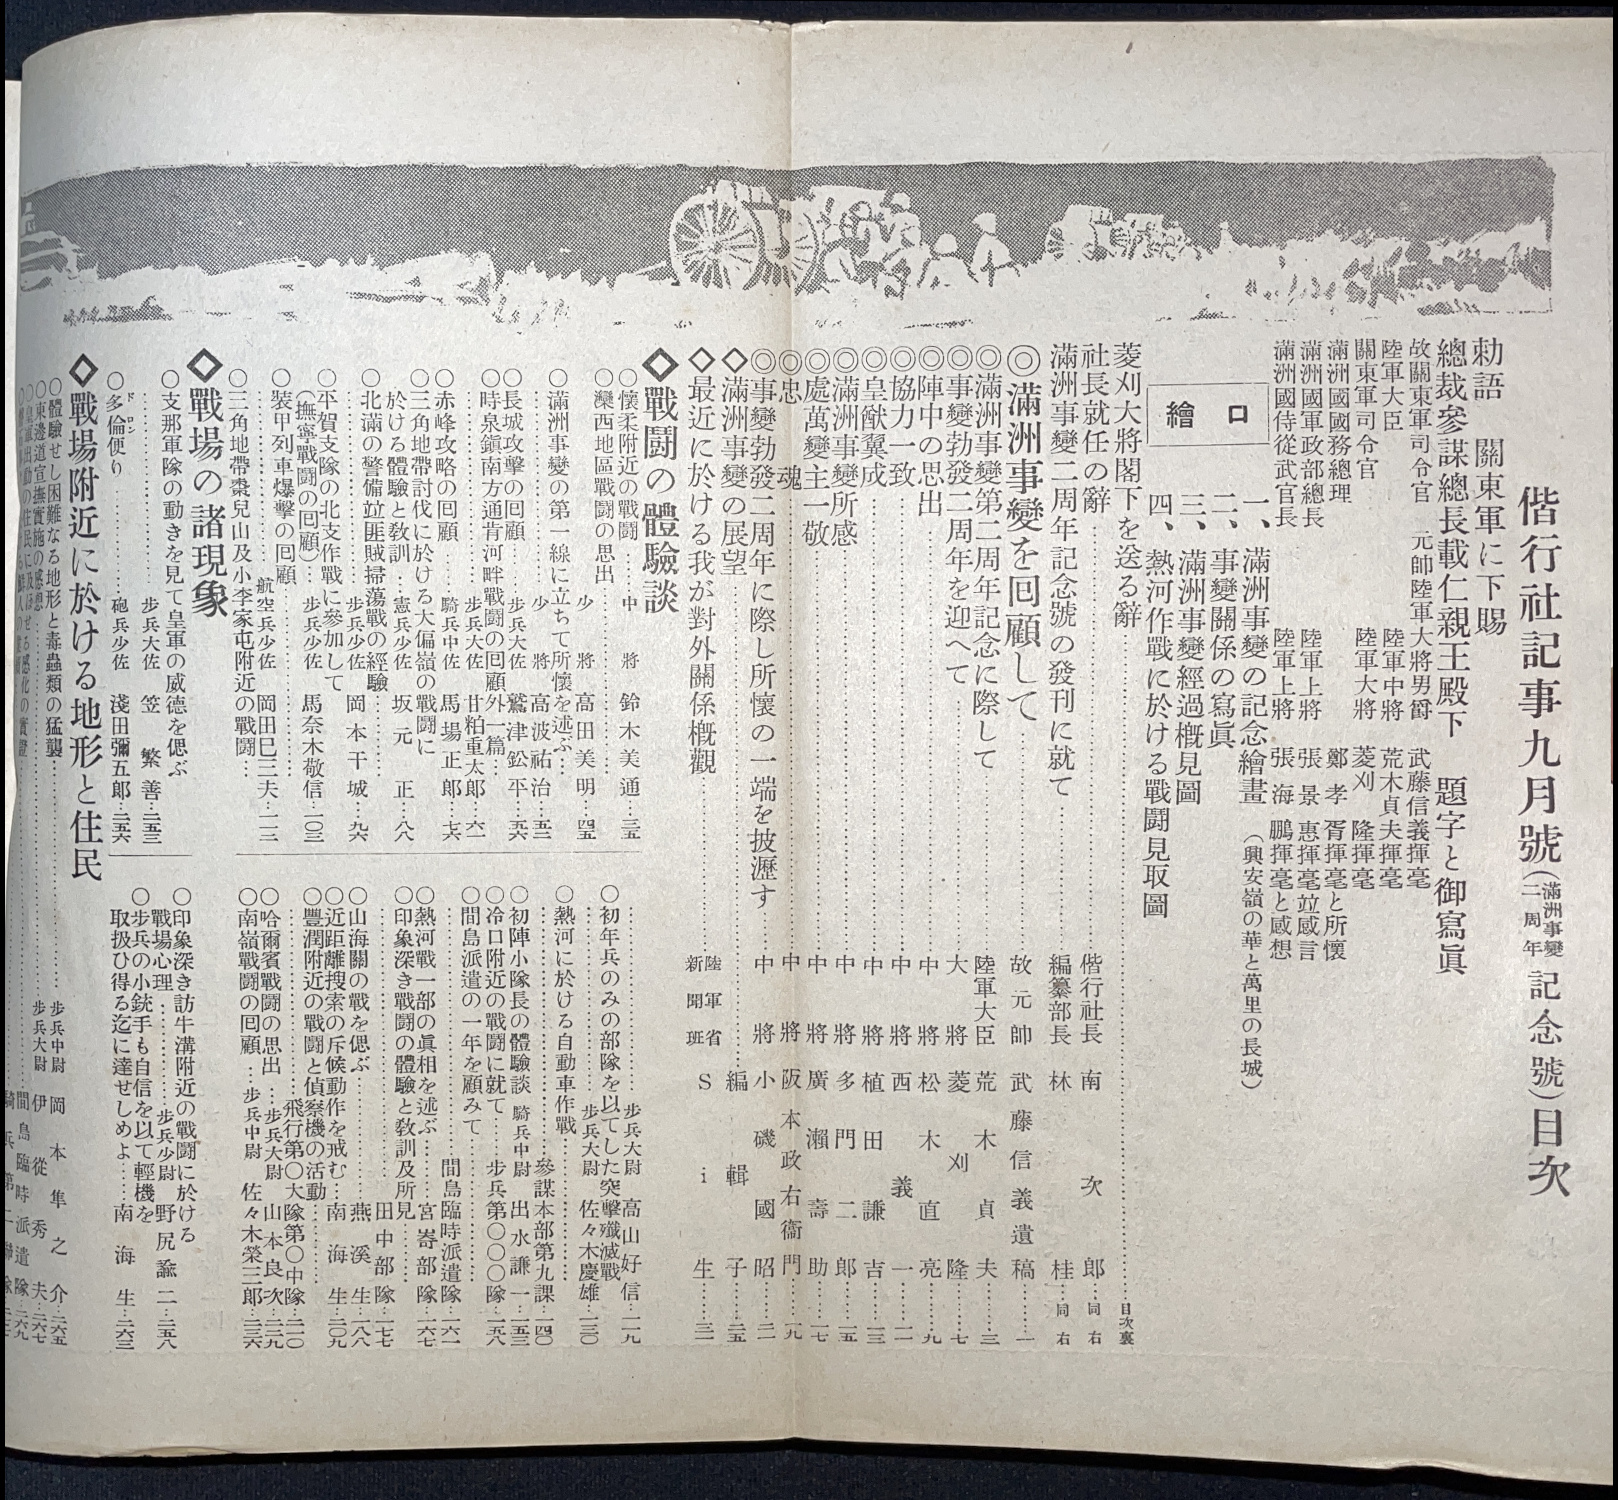 偕行社記事九月號(滿洲事變二周年記念號)目次
勅語 關東軍に下賜
總裁參謀總長載仁親王殿下 題字と御寫眞
故關東軍司令官 元帥陸軍大將男爵 武藤信義揮毫
陸軍大臣 陸軍中將 荒木貞夫揮毫
關東軍司令官 陸軍大將 菱刈 隆揮毫
滿洲國國務總理 鄭孝胥揮毫と所懷
滿洲國軍政部總長 陸軍上將 張景惠揮毫竝感言
滿洲國侍從武官長 陸軍上將 張海鵬揮毫と感想
口繪
一、滿洲事變の記念繪畫(興安嶺の華と萬里の長城)
二、事變關係の寫眞
三、滿洲事變經過概見圖
四、熱河作戰に於ける戰鬪見取圖
菱刈大將閣下を送る辭……目次裏
社長就任の辭……偕行社長 南 次郎…同右
滿洲事變二周年記念號の發刊に就て……編纂部長 林 桂…同右
◎滿洲事變を回顧して……故元帥 武藤信義遺稿……一
◎滿洲事變第二周年記念に際して……陸軍大臣 荒木貞夫……三
◎事變勃發二周年を迎へて……大將 菱刈 隆……七
◎陣中の思出……中將 松木直亮……九
◎協力一致……中將 西 義一……一一
◎皇猷翼成……中將 植田謙吉……一三
◎滿洲事變所感……中將 多門二郎……一五
◎處萬變主一敬……中將 廣瀨壽助……一七
◎忠魂……中將 阪本政右衞門……一九
◎事變勃發二周年に際し所懷の一端を披瀝す……中將 小磯國昭……二一
◇滿洲事變の展望……編輯子……二五
◇最近に於ける我が對外關係概觀……陸軍省新聞班 Si生……三一
◇戰鬪の體驗談
○懷柔附近の戰鬪……中將 鈴木美通…三五
○灤西地區戰鬪の思出……少將 高田美明…四五
○滿洲事變の第一線に立ちて所懷を述ぶ……少將 高波祐治…五二
○長城攻擊の回顧……步兵大佐 鷲津鈆平…五六
○時泉鎭南方通肯河畔戰鬪の回顧外一篇……步兵大佐 甘粕重太郎…六一
○赤峰攻略の回顧……騎兵中佐 馬場正郎…七六
○三角地帶討伐に於ける大偏嶺の戰鬪に
於ける體驗と敎訓……憲兵少佐 坂元 正…八八
○北滿の警備竝匪賊掃蕩戰の經驗……步兵少佐 岡本干城…九六
○平賀支隊の北支作戰に參加して
(撫寧戰鬪の回顧)…步兵少佐 馬奈木敬信…一〇三
○裝甲列車爆擊の回顧……航空兵少佐 岡田巳三夫…一一三
○三角地帶棗兒山及小李家屯附近の戰鬪…
……步兵大尉 高山好信…一一九
○初年兵のみの部隊を以てした突擊殲滅戰
……步兵大尉 佐々木慶雄…一三〇
○熱河に於ける自動車作戰……
……參謀本部第九課…一四〇
○初陣小隊長の體驗談 騎兵中尉 出水謙一…一五三
○冷口附近の戰鬪に就て…步兵第〇〇〇隊…一五八
○間島派遣の一年を顧みて……間島臨時派遣隊…一六一
○熱河戰一部の眞相を述ぶ……宮嵜部隊…一六七
○印象深き戰鬪の體驗と敎訓及所見……田中部隊…一七七
○山海關の戰を偲ぶ……燕溪生…一八八
○近距離搜索の斥候動作を戒む…南海生…二〇九
○豐潤附近の戰鬪と偵察機の活動……
……飛行第〇大隊第〇中隊…二一〇
○哈爾賓戰鬪の思出…步兵大尉 山本良次…二二九
○南嶺戰鬪の回顧…步兵中尉 佐々木榮三郎…二三六
◇戰場の諸現象
○支那軍隊の動きを見て皇軍の威德を偲ぶ
……步兵大佐 笠 繁善…二五三
○多倫便り……砲兵少佐 淺田彌五郎…二五六
ドロン
○印象深き訪牛溝附近の戰鬪に於ける
戰場心理……步兵少尉 野尻諭二…二五八
○步兵の小銃手も自信を以て輕機を
取扱ひ得る迄に達せしめよ…南海生…二六三
◇戰場附近に於ける地形と住民
○體驗せし困難なる地形と毒蟲類の猛襲……步兵中尉 岡本隼之介…二六五
○東邊道宣撫實施の感想……步兵大尉 伊從秀夫…二六七
間島臨時派遣隊…二六九